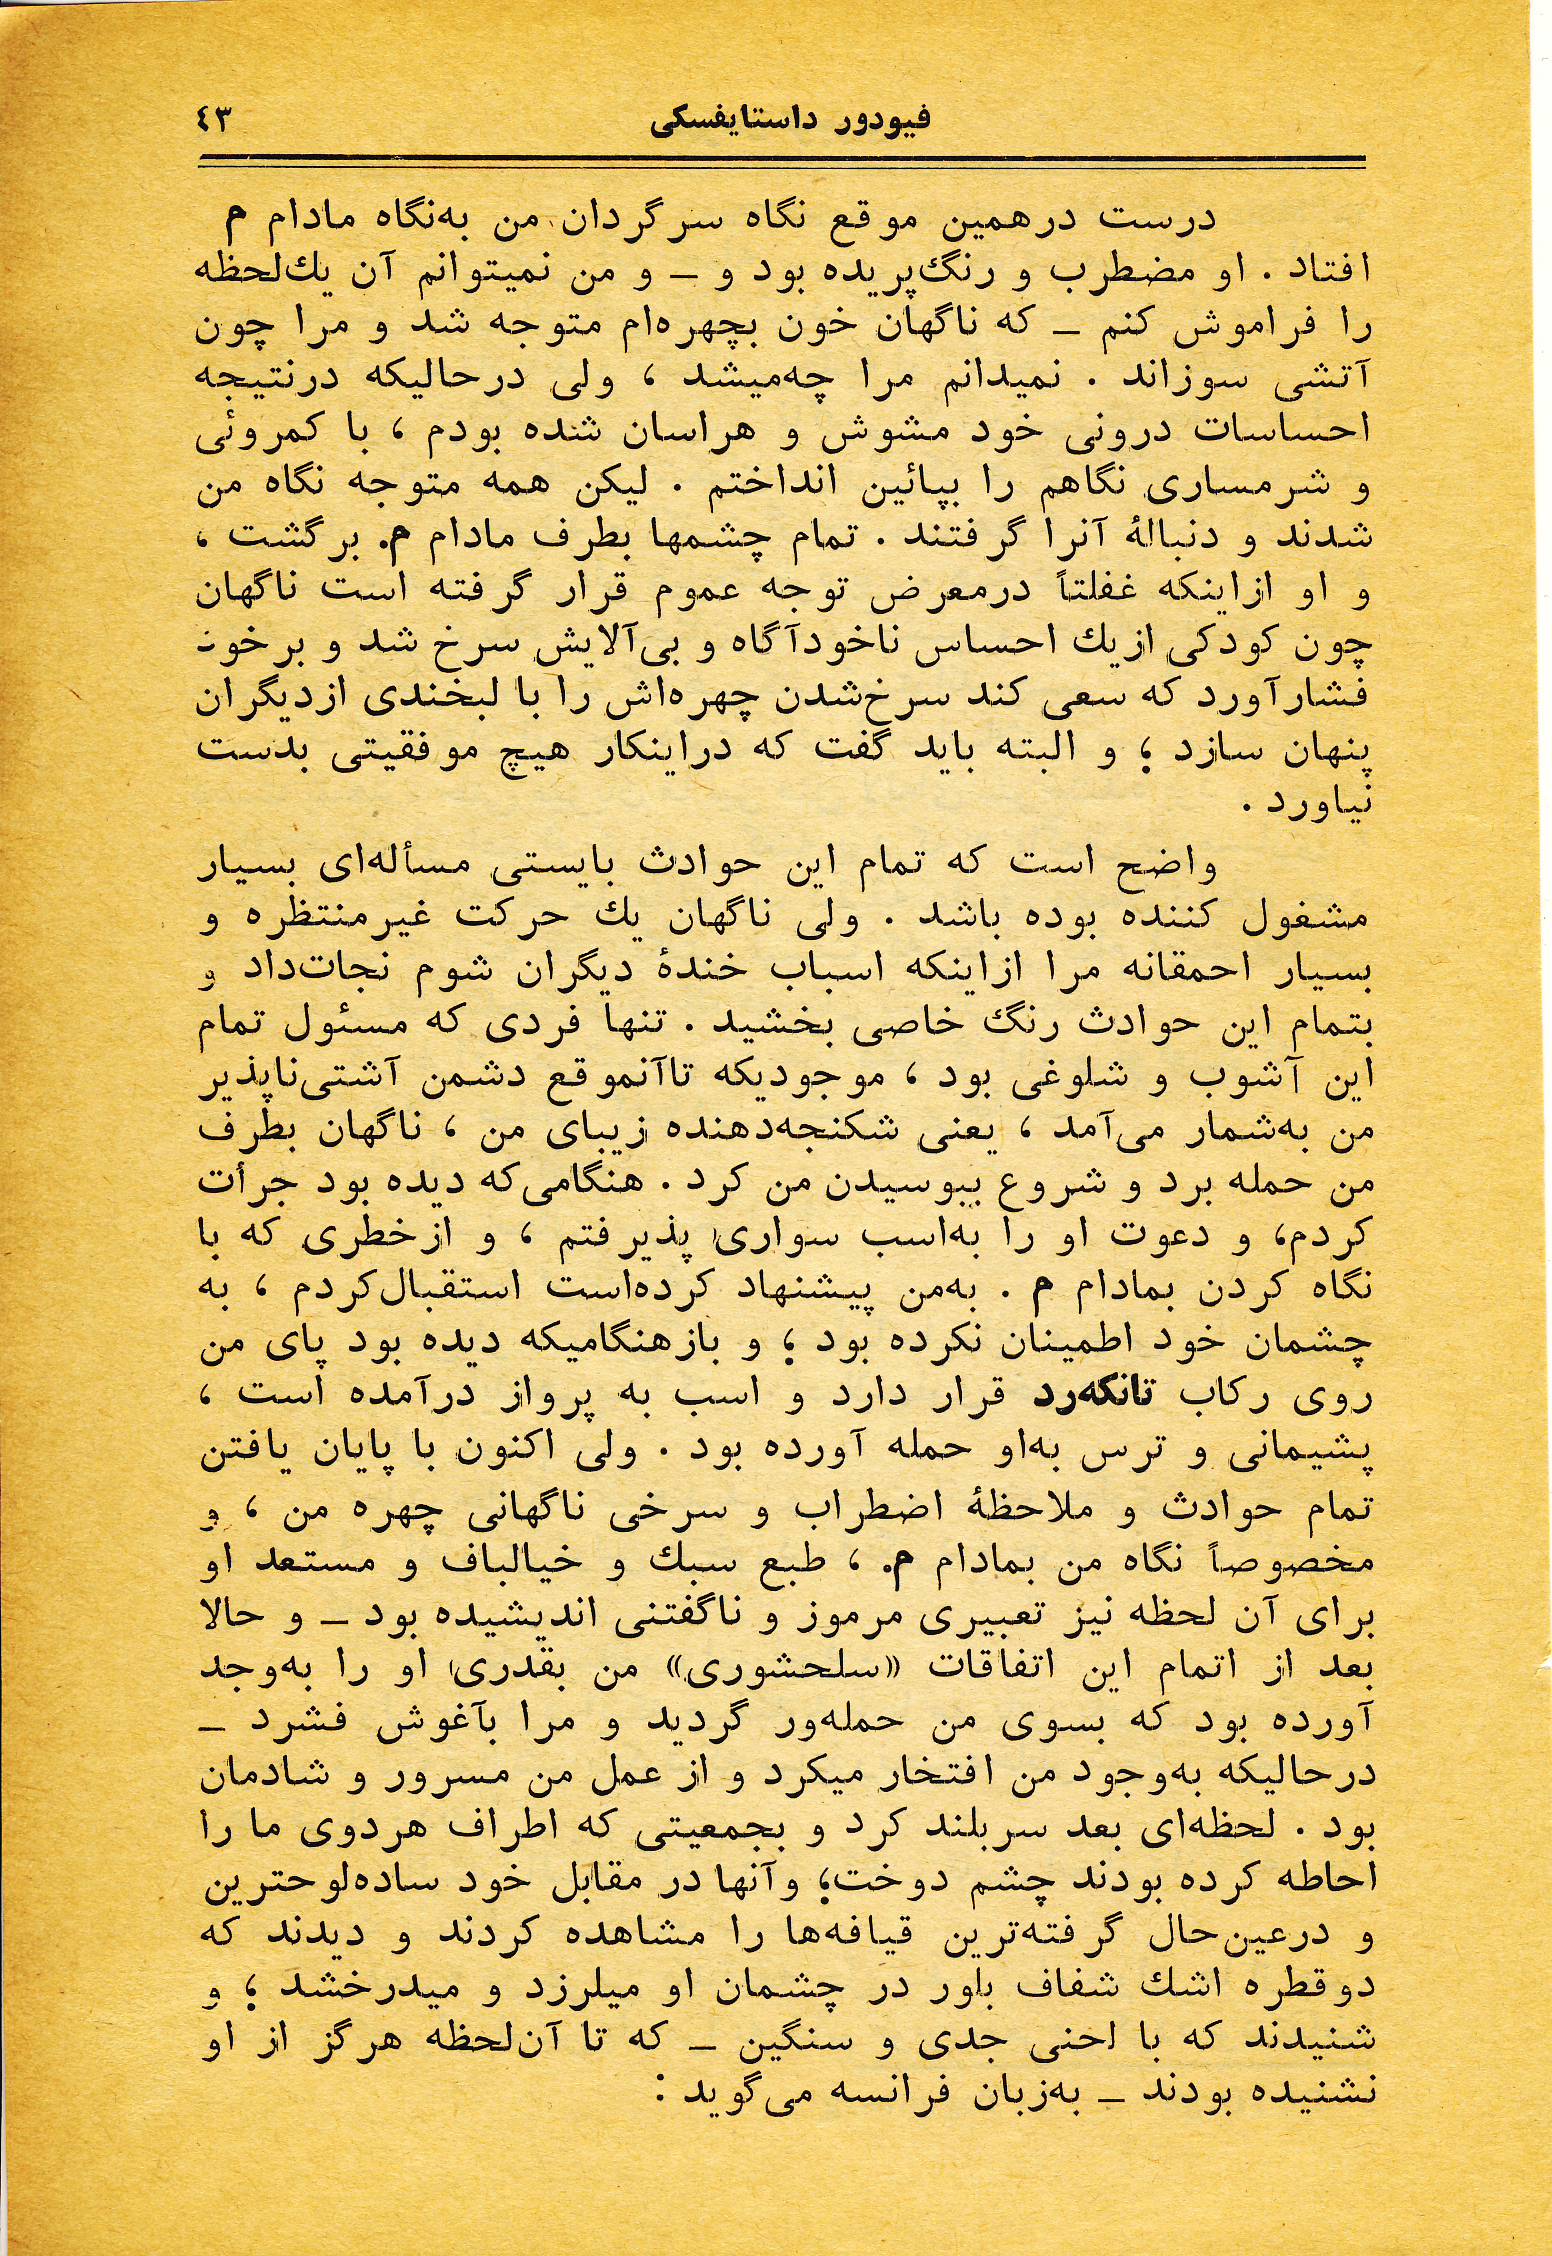 فیودور داستایفسکی ٤٣
درست درهمین موقع نگاه سرگردان من به‌نگاه مادام م
افتاد . او مضطرب و رنگ‌پریده بود و – و من نمیتوانم آن یك‌لحظه
را فراموش کنم – که ناگهان خون بچهره‌ام متوجه شد و مرا چون
آتشی سوزاند . نمیدانم مرا چه‌میشد ، ولی درحالیکه درنتیجه
احساسات درونی خود مشوش و هراسان شده بودم ، با کمروئی
و شرمساری نگاهم را بپائین انداختم . لیکن همه متوجه نگاه من
شدند و دنبالهٔ آنرا گرفتند . تمام چشمها بطرف مادام م. برگشت ،
و او ازاینکه غفلتاً درمعرض توجه عموم قرار گرفته است ناگهان
چون کودکی ازیك احساس ناخودآگاه و بی‌آلایش سرخ شد و برخود
فشارآورد که سعی کند سرخ‌شدن چهره‌اش را با لبخندی ازدیگران
پنهان سازد ؛ و البته باید گفت که دراینکار هیچ موفقیتی بدست
نیاورد .
واضح است که تمام این حوادث بایستی مسأله‌ای بسیار
مشغول کننده بوده باشد . ولی ناگهان یك حرکت غیرمنتظره و
بسیار احمقانه مرا ازاینکه اسباب خندهٔ دیگران شوم نجات‌داد و
بتمام این حوادث رنگ خاصی بخشید . تنها فردی که مسئول تمام
این آشوب و شلوغی بود ، موجودیکه تاآنموقع دشمن آشتی‌ناپذیر
من به‌شمار می‌آمد ، یعنی شکنجه‌دهنده زیبای من ، ناگهان بطرف
من حمله برد و شروع ببوسیدن من کرد . هنگامی‌که دیده بود جرأت
کردم، و دعوت او را به‌اسب سواری پذیرفتم ، و ازخطری که با
نگاه کردن بمادام م . به‌من پیشنهاد کرده‌است استقبال‌کردم ، به
چشمان خود اطمینان نکرده بود ؛ و بازهنگامیکه دیده بود پای من
روی رکاب تانکه‌رد قرار دارد و اسب به پرواز درآمده است ،
پشیمانی و ترس به‌او حمله آورده بود . ولی اکنون با پایان یافتن
تمام حوادث و ملاحظهٔ اضطراب و سرخی ناگهانی چهره من ، و
مخصوصاً نگاه من بمادام م. ، طبع سبك و خیالباف و مستعد او
برای آن لحظه نیز تعبیری مرموز و ناگفتنی اندیشیده بود – و حالا
بعد از اتمام این اتفاقات «سلحشوری» من بقدری او را به‌وجد
آورده بود که بسوی من حمله‌ور گردید و مرا بآغوش فشرد –
درحالیکه به‌وجود من افتخار میکرد و از عمل من مسرور و شادمان
بود . لحظه‌ای بعد سربلند کرد و بجمعیتی که اطراف هردوی ما را
احاطه کرده بودند چشم دوخت؛ وآنها در مقابل خود ساده‌لوحترین
و درعین‌حال گرفته‌ترین قیافه‌ها را مشاهده کردند و دیدند که
دوقطره اشك شفاف بلور در چشمان او میلرزد و میدرخشد ؛ و
شنیدند که با لحنی جدی و سنگین – که تا آن‌لحظه هرگز از او
نشنیده بودند – به‌زبان فرانسه می‌گوید :